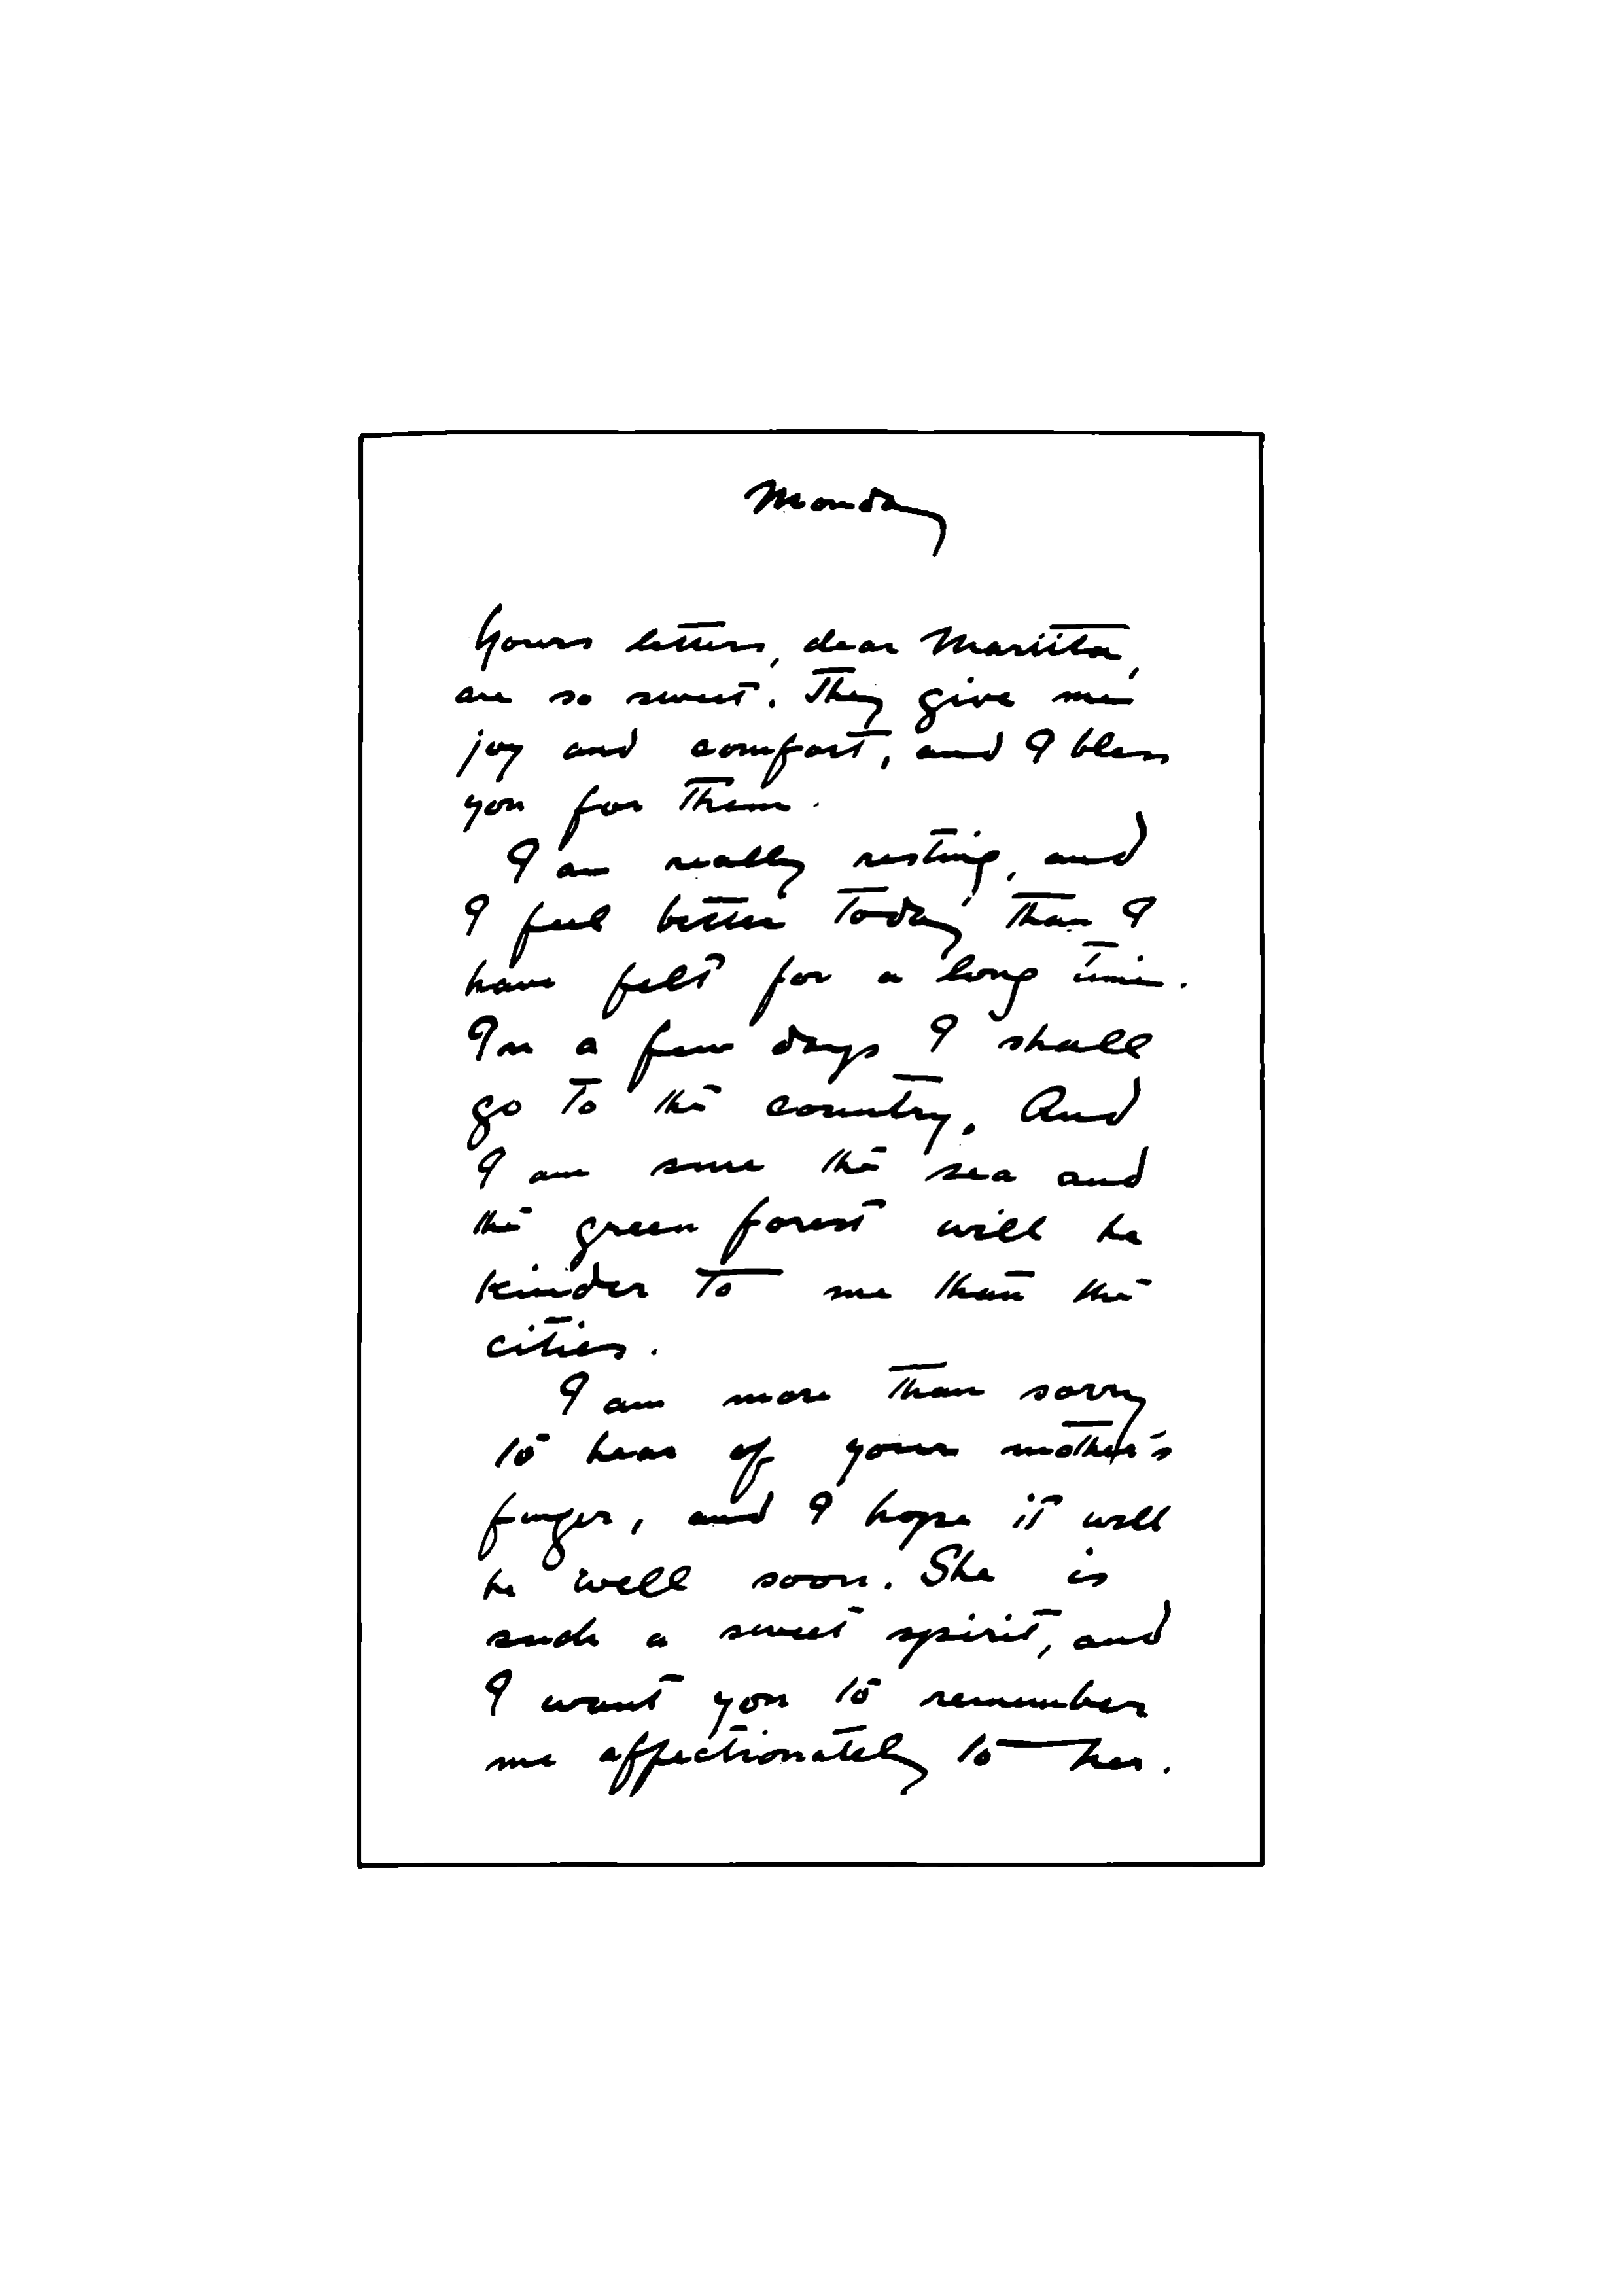 Monday
Yours letters, dear Mariita,
are so sweet. They give me
joy and comfort, and I bless
you for them.
I am really resting, and
I feel better today than I
have felt for a long time.
In a few days I shall
go to the country. And
I am sure the sea and
the green forest will be
kinder to me than the
cities.
I am more than sorry
to hear of your mother's
finger, and I hope it will
be well soon. She is
such a sweet spirit, and
I want you to remember
me affectionately to her.